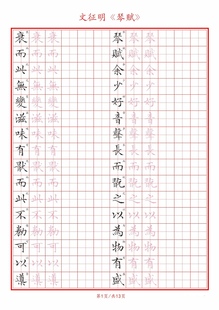 文征明《琴赋》
琴賦余少好音聲長而翫之以為物有盛
衰而此無變滋味有厭而此不勌可以導
第1页/共13页